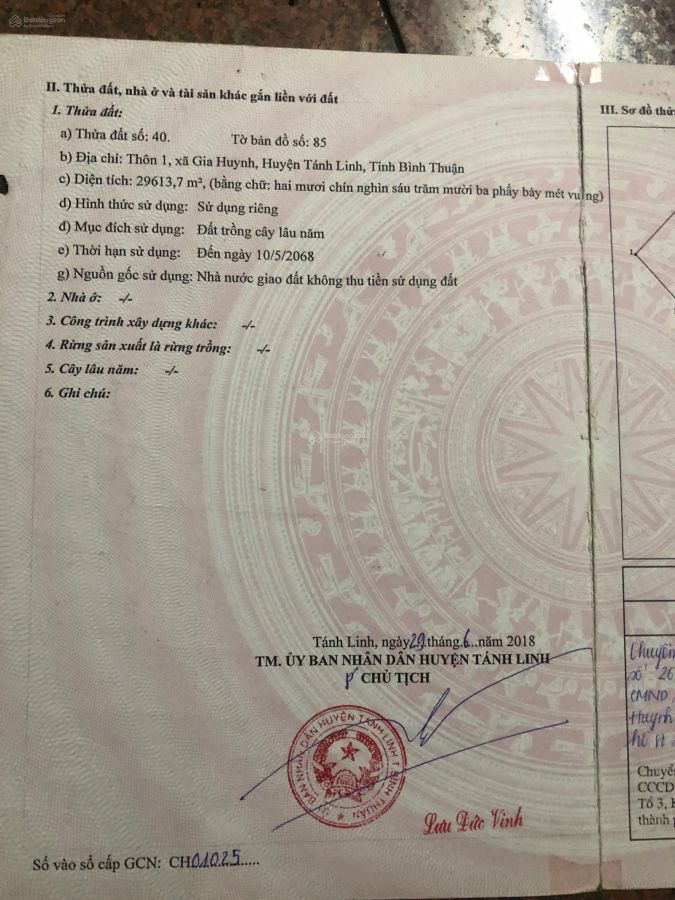 Batdongsan
II. Thửa đất, nhà ở và tài sản khác gắn liền với đất
1. Thửa đất:
a) Thửa đất số: 40. Tờ bản đồ số: 85
b) Địa chỉ: Thôn 1, xã Gia Huynh, Huyện Tánh Linh, Tỉnh Bình Thuận
c) Diện tích: 29613,7 m², (bằng chữ: hai mươi chín nghìn sáu trăm mười ba phẩy bảy mét vuông)
d) Hình thức sử dụng: Sử dụng riêng
đ) Mục đích sử dụng: Đất trồng cây lâu năm
e) Thời hạn sử dụng: Đến ngày 10/5/2068
g) Nguồn gốc sử dụng: Nhà nước giao đất không thu tiền sử dụng đất
2. Nhà ở: -/-
3. Công trình xây dựng khác: -/-
4. Rừng sản xuất là rừng trồng: -/-
5. Cây lâu năm: -/-
6. Ghi chú:
Tánh Linh, ngày 29 tháng 6 năm 2018
TM. ỦY BAN NHÂN DÂN HUYỆN TÁNH LINH
CHỦ TỊCH
ỦY BAN NHÂN DÂN HUYỆN TÁNH LINH T. BÌNH THUẬN
Lưu Đức Vinh
Số vào sổ cấp GCN: CH01025
III. Sơ đồ thử
1
Chuyển
số: 26
CMND
Huỳnh
Chuyể
CCCD
Tổ 3, 
thành